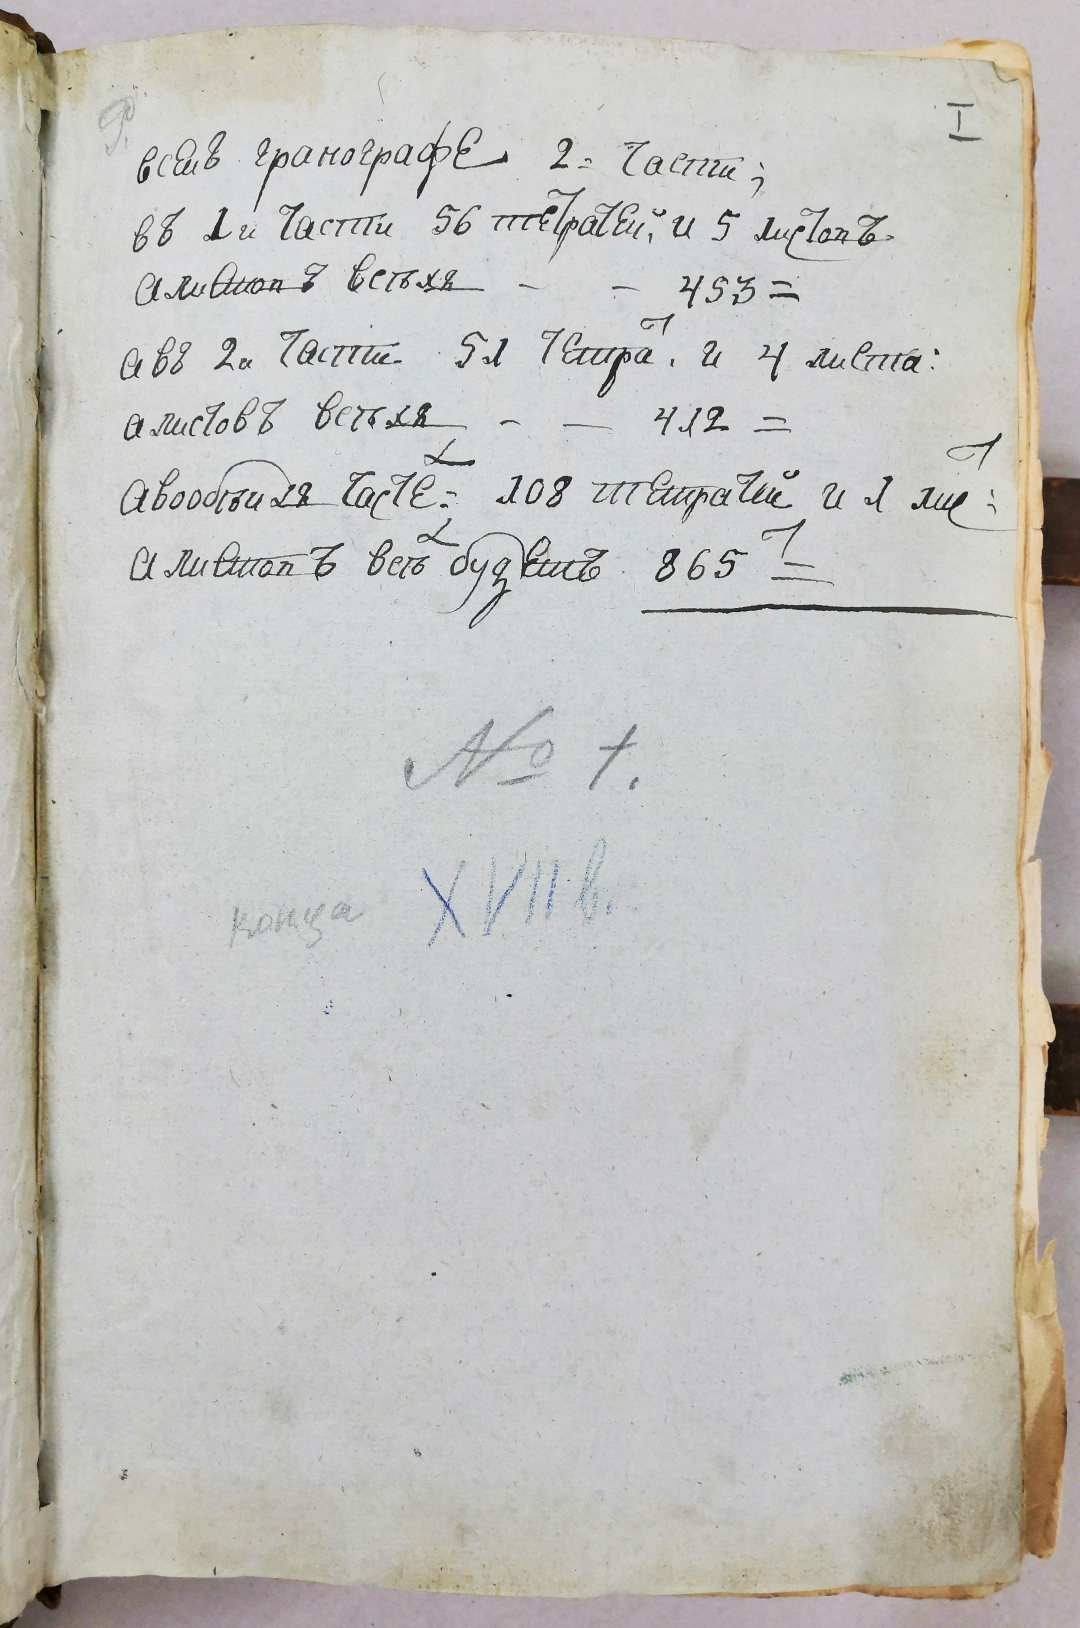 I
всемъ гранографе 2= части;
въ 1й части 56 тетратей, и 5 листовъ
а листовъ всѣхъ - - 453 =
а въ 2й части 51 тетра т. и 4 листа:
а листовъ всѣхъ - - 412 =
а вообѣихъ частех: 108 тетратей и 1 лис т:
а листовъ всѣх будетъ 865 =
№ 1.
конца XVII в.